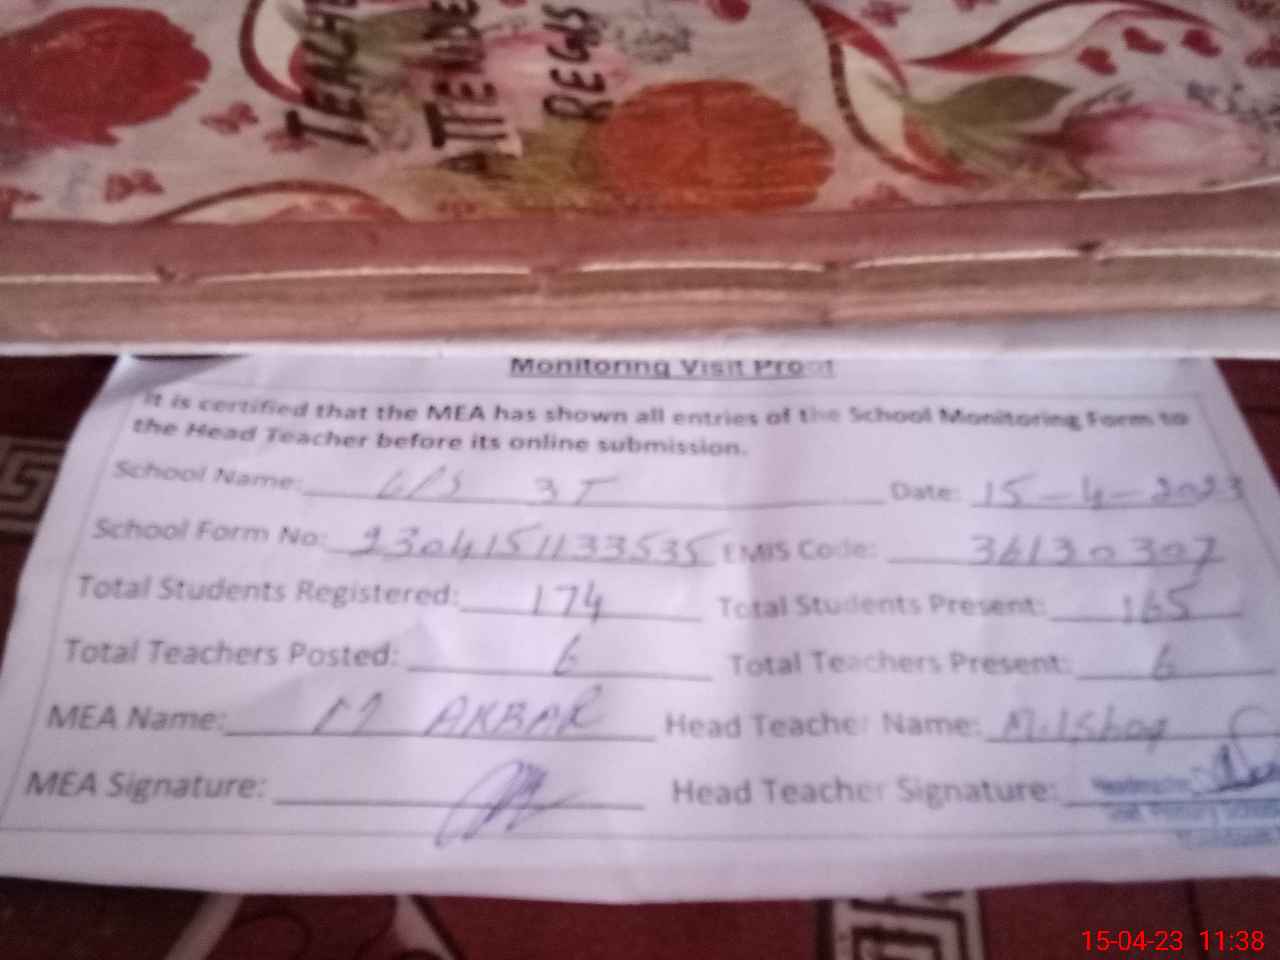 TEACHE
ATTENDE
REGIS
Monitoring Visit Proof
It is certified that the MEA has shown all entries of the School Monitoring Form to
the Head Teacher before its online submission.
School Name: GPS 3T Date: 15-4-2023
School Form No: 2304151133535 EMIS Code: 36130307
Total Students Registered: 174 Total Students Present: 165
Total Teachers Posted: 6 Total Teachers Present: 6
MEA Name: M AKBAR Head Teacher Name: M.Ishaq
MEA Signature: Head Teacher Signature:
Primary School
15-04-23 11:38